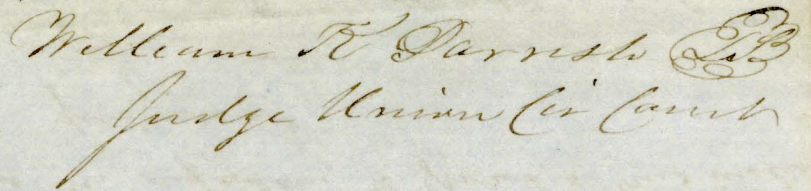 William K Parrish
Judge Union Cir Court